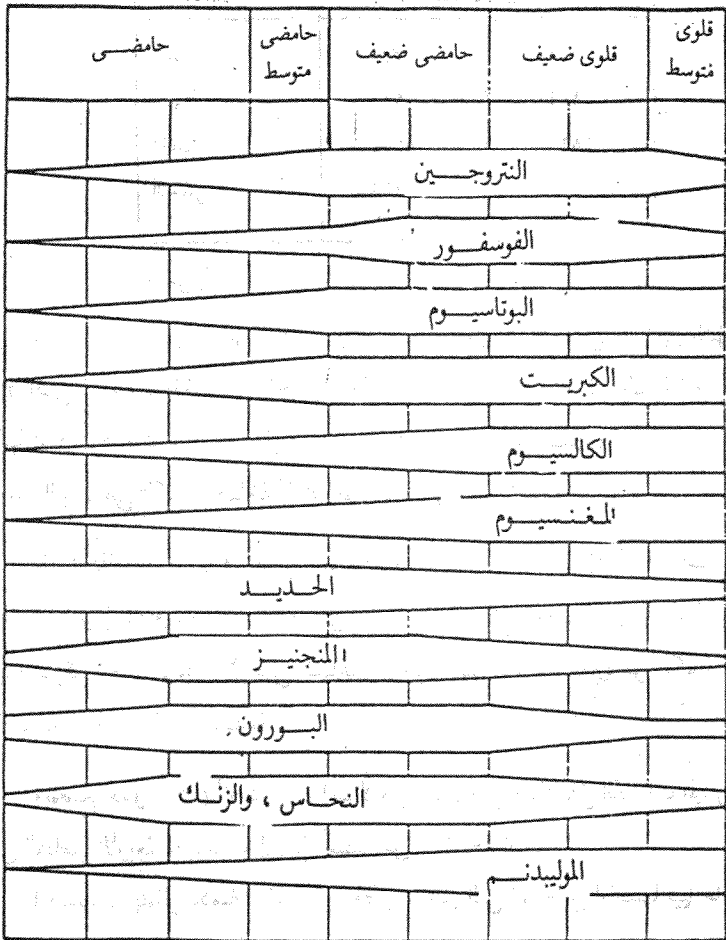 قلوى متوسط
قلوى ضعيف
حامضى ضعيف
حامضى متوسط
حامضــى
النتروجــين
الفوسفــور
البوتاسيــوم
الكبريــت
الكالسيــوم
المغـنـسيــوم
الحـديــد
المنجنيــز
البــورون
النحــاس ، والزنــك
الموليبدنــم